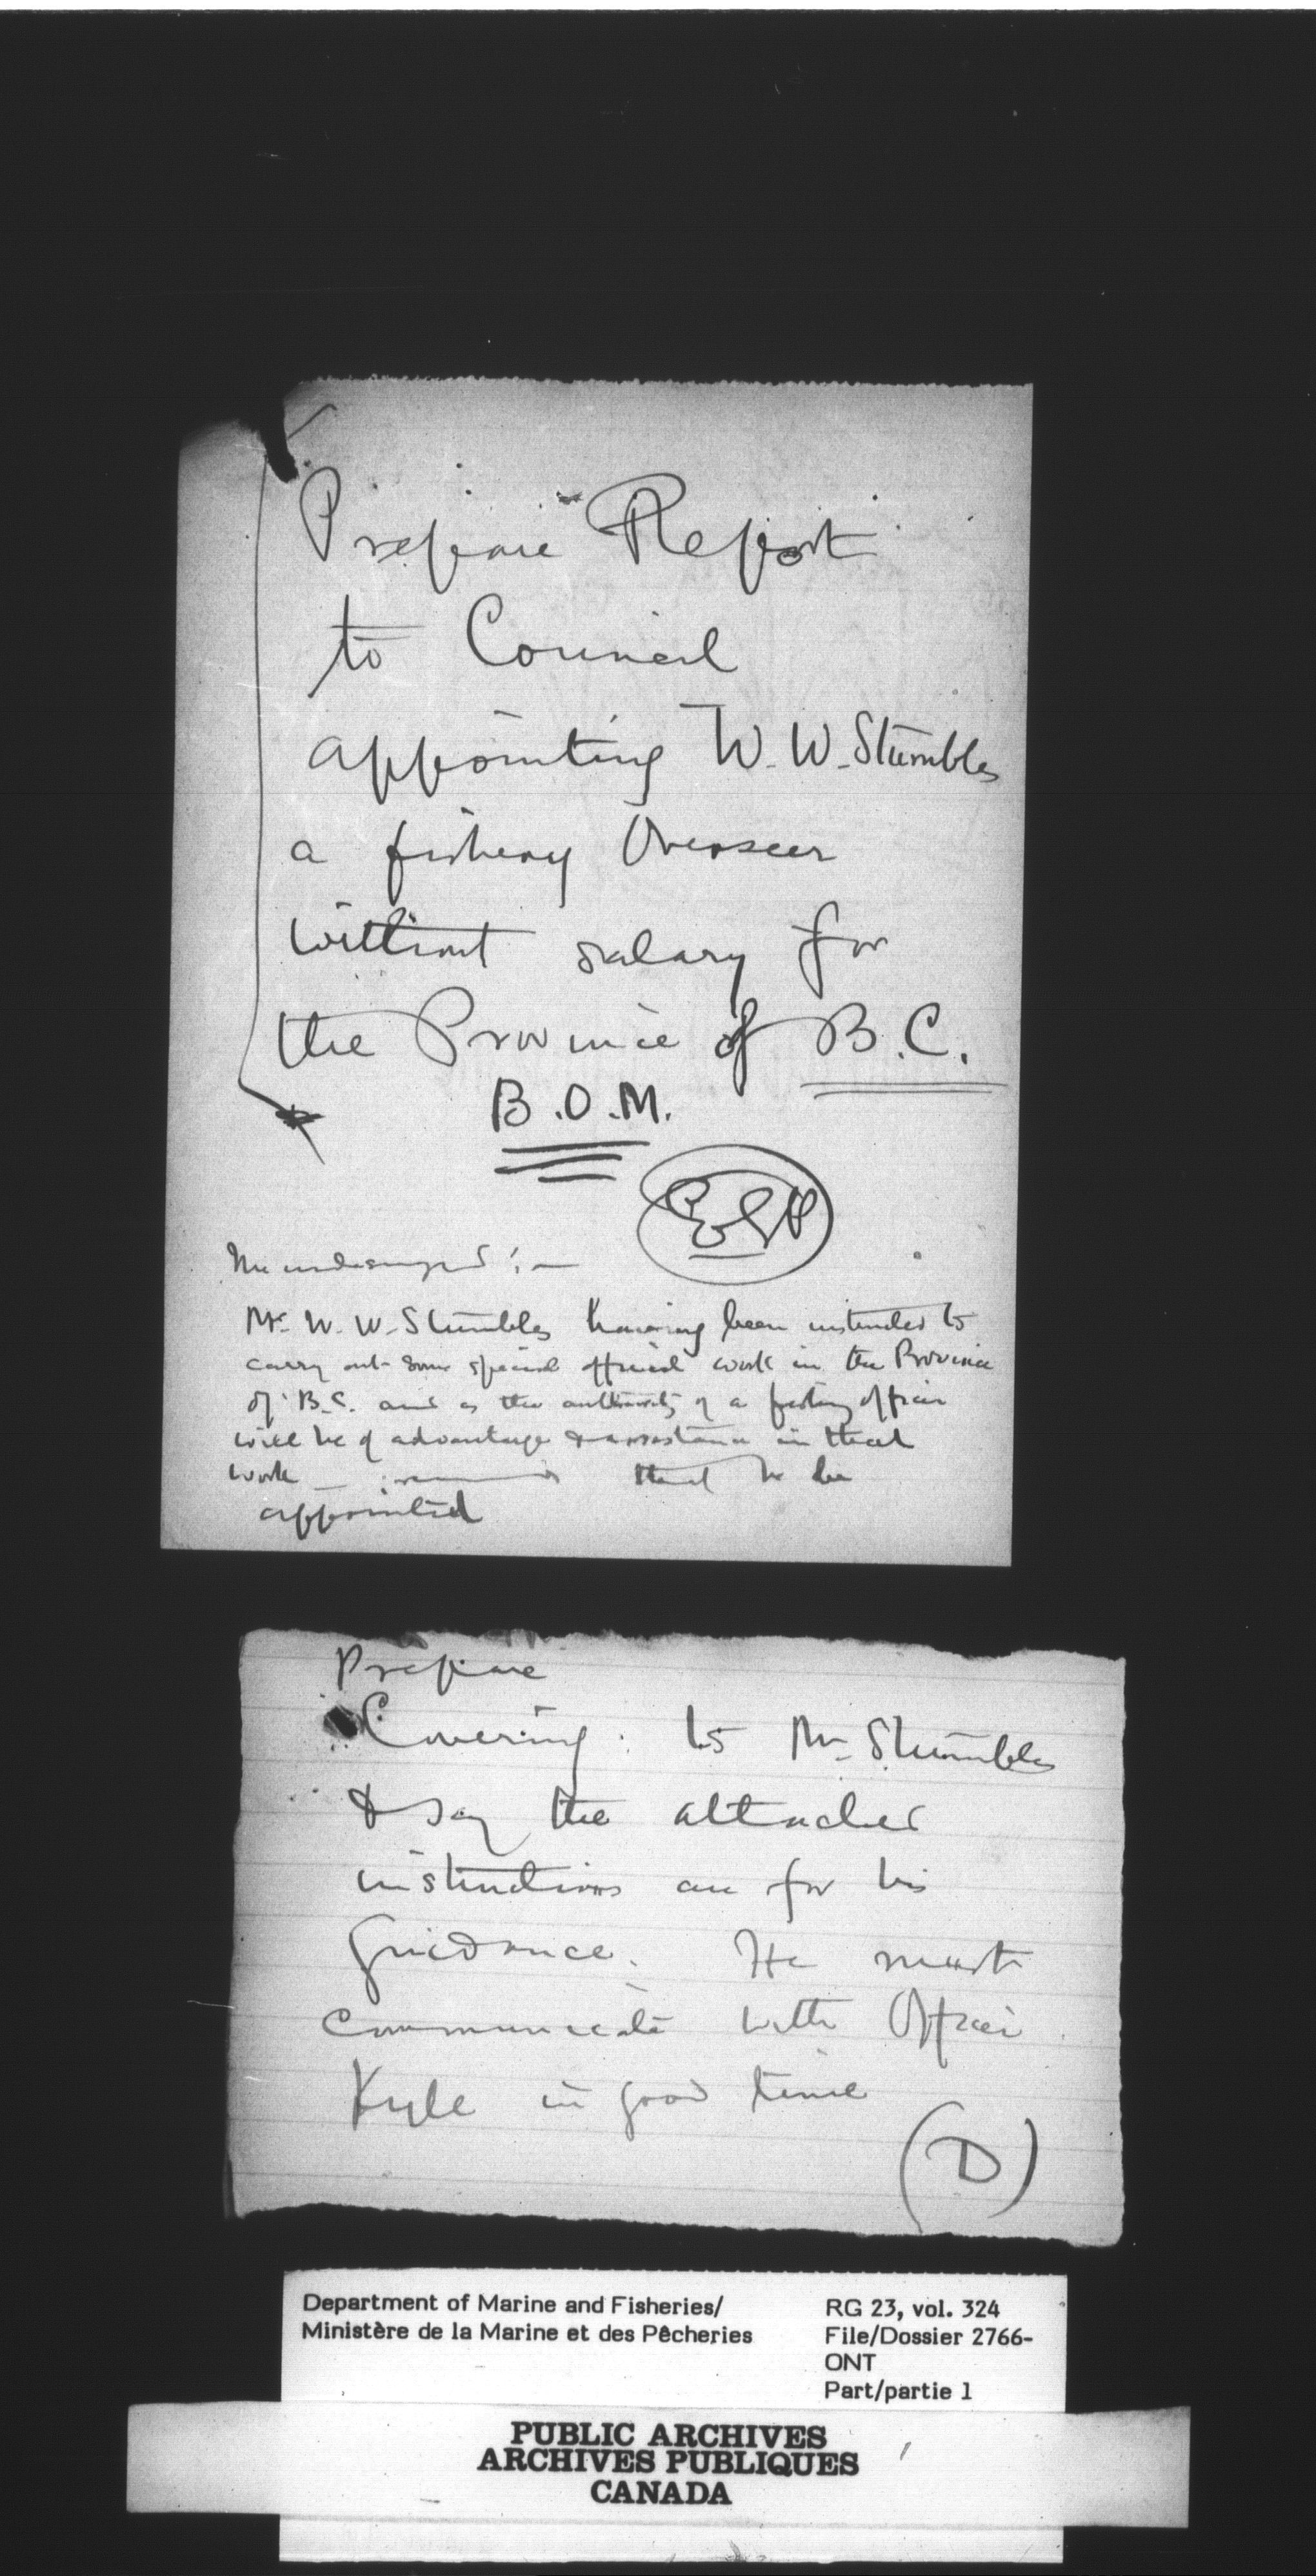 Prepare Report
to Council
appointing W. W. Stumbles
a fishery Overseer
without salary for
the Province of B.C.
B.O.M.
The undersigned :—
Mr. W. W. Stumbles having been instructed to
carry out some special official work in the Province
of B.C. and as the authority of a fishery officer
will be of advantage & assistance in that
work that he be
appointed
Prepare
Covering to Mr. Stumbles
& say the attached
instructions are for his
guidance. He must
communicate with Officer
Kyle in good time
(D)
Department of Marine and Fisheries/
Ministère de la Marine et des Pêcheries
RG 23, vol. 324
File/Dossier 2766-
ONT
Part/partie 1
PUBLIC ARCHIVES
ARCHIVES PUBLIQUES
CANADA